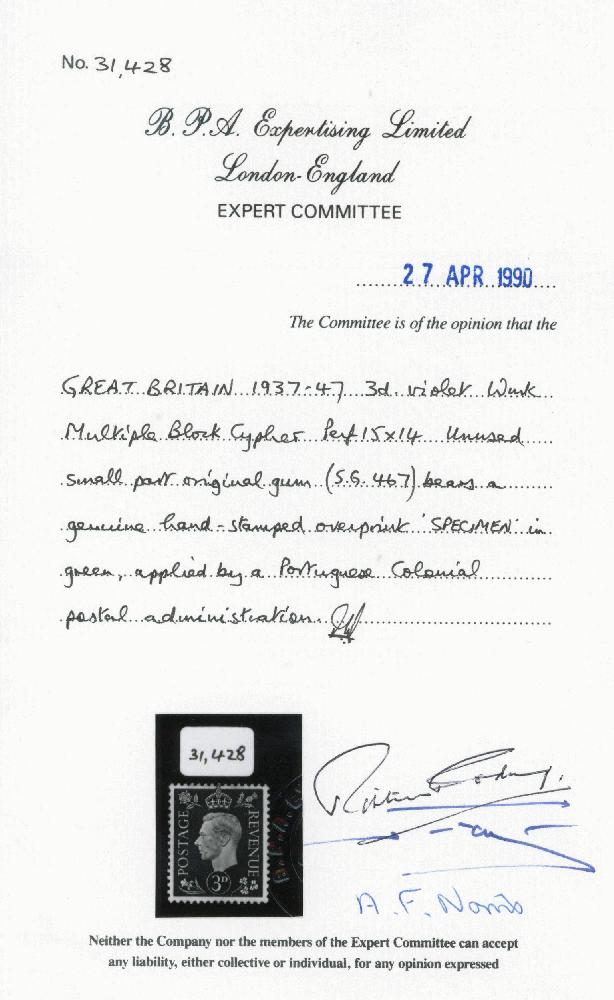 No. 31,428
B. P. A. Expertising Limited
London-England
EXPERT COMMITTEE
27 APR 1990
The Committee is of the opinion that the
GREAT BRITAIN 1937-47 3d. violet Wmk
Multiple Block Cypher Perf 15x14 Unused
small part original gum (S.G. 467) bears a
genuine hand-stamped overprint 'SPECIMEN' in
green, applied by a Portuguese Colonial
postal administration.
31,428
POSTAGE REVENUE
3D
A. F. Norris
Neither the Company nor the members of the Expert Committee can accept
any liability, either collective or individual, for any opinion expressed